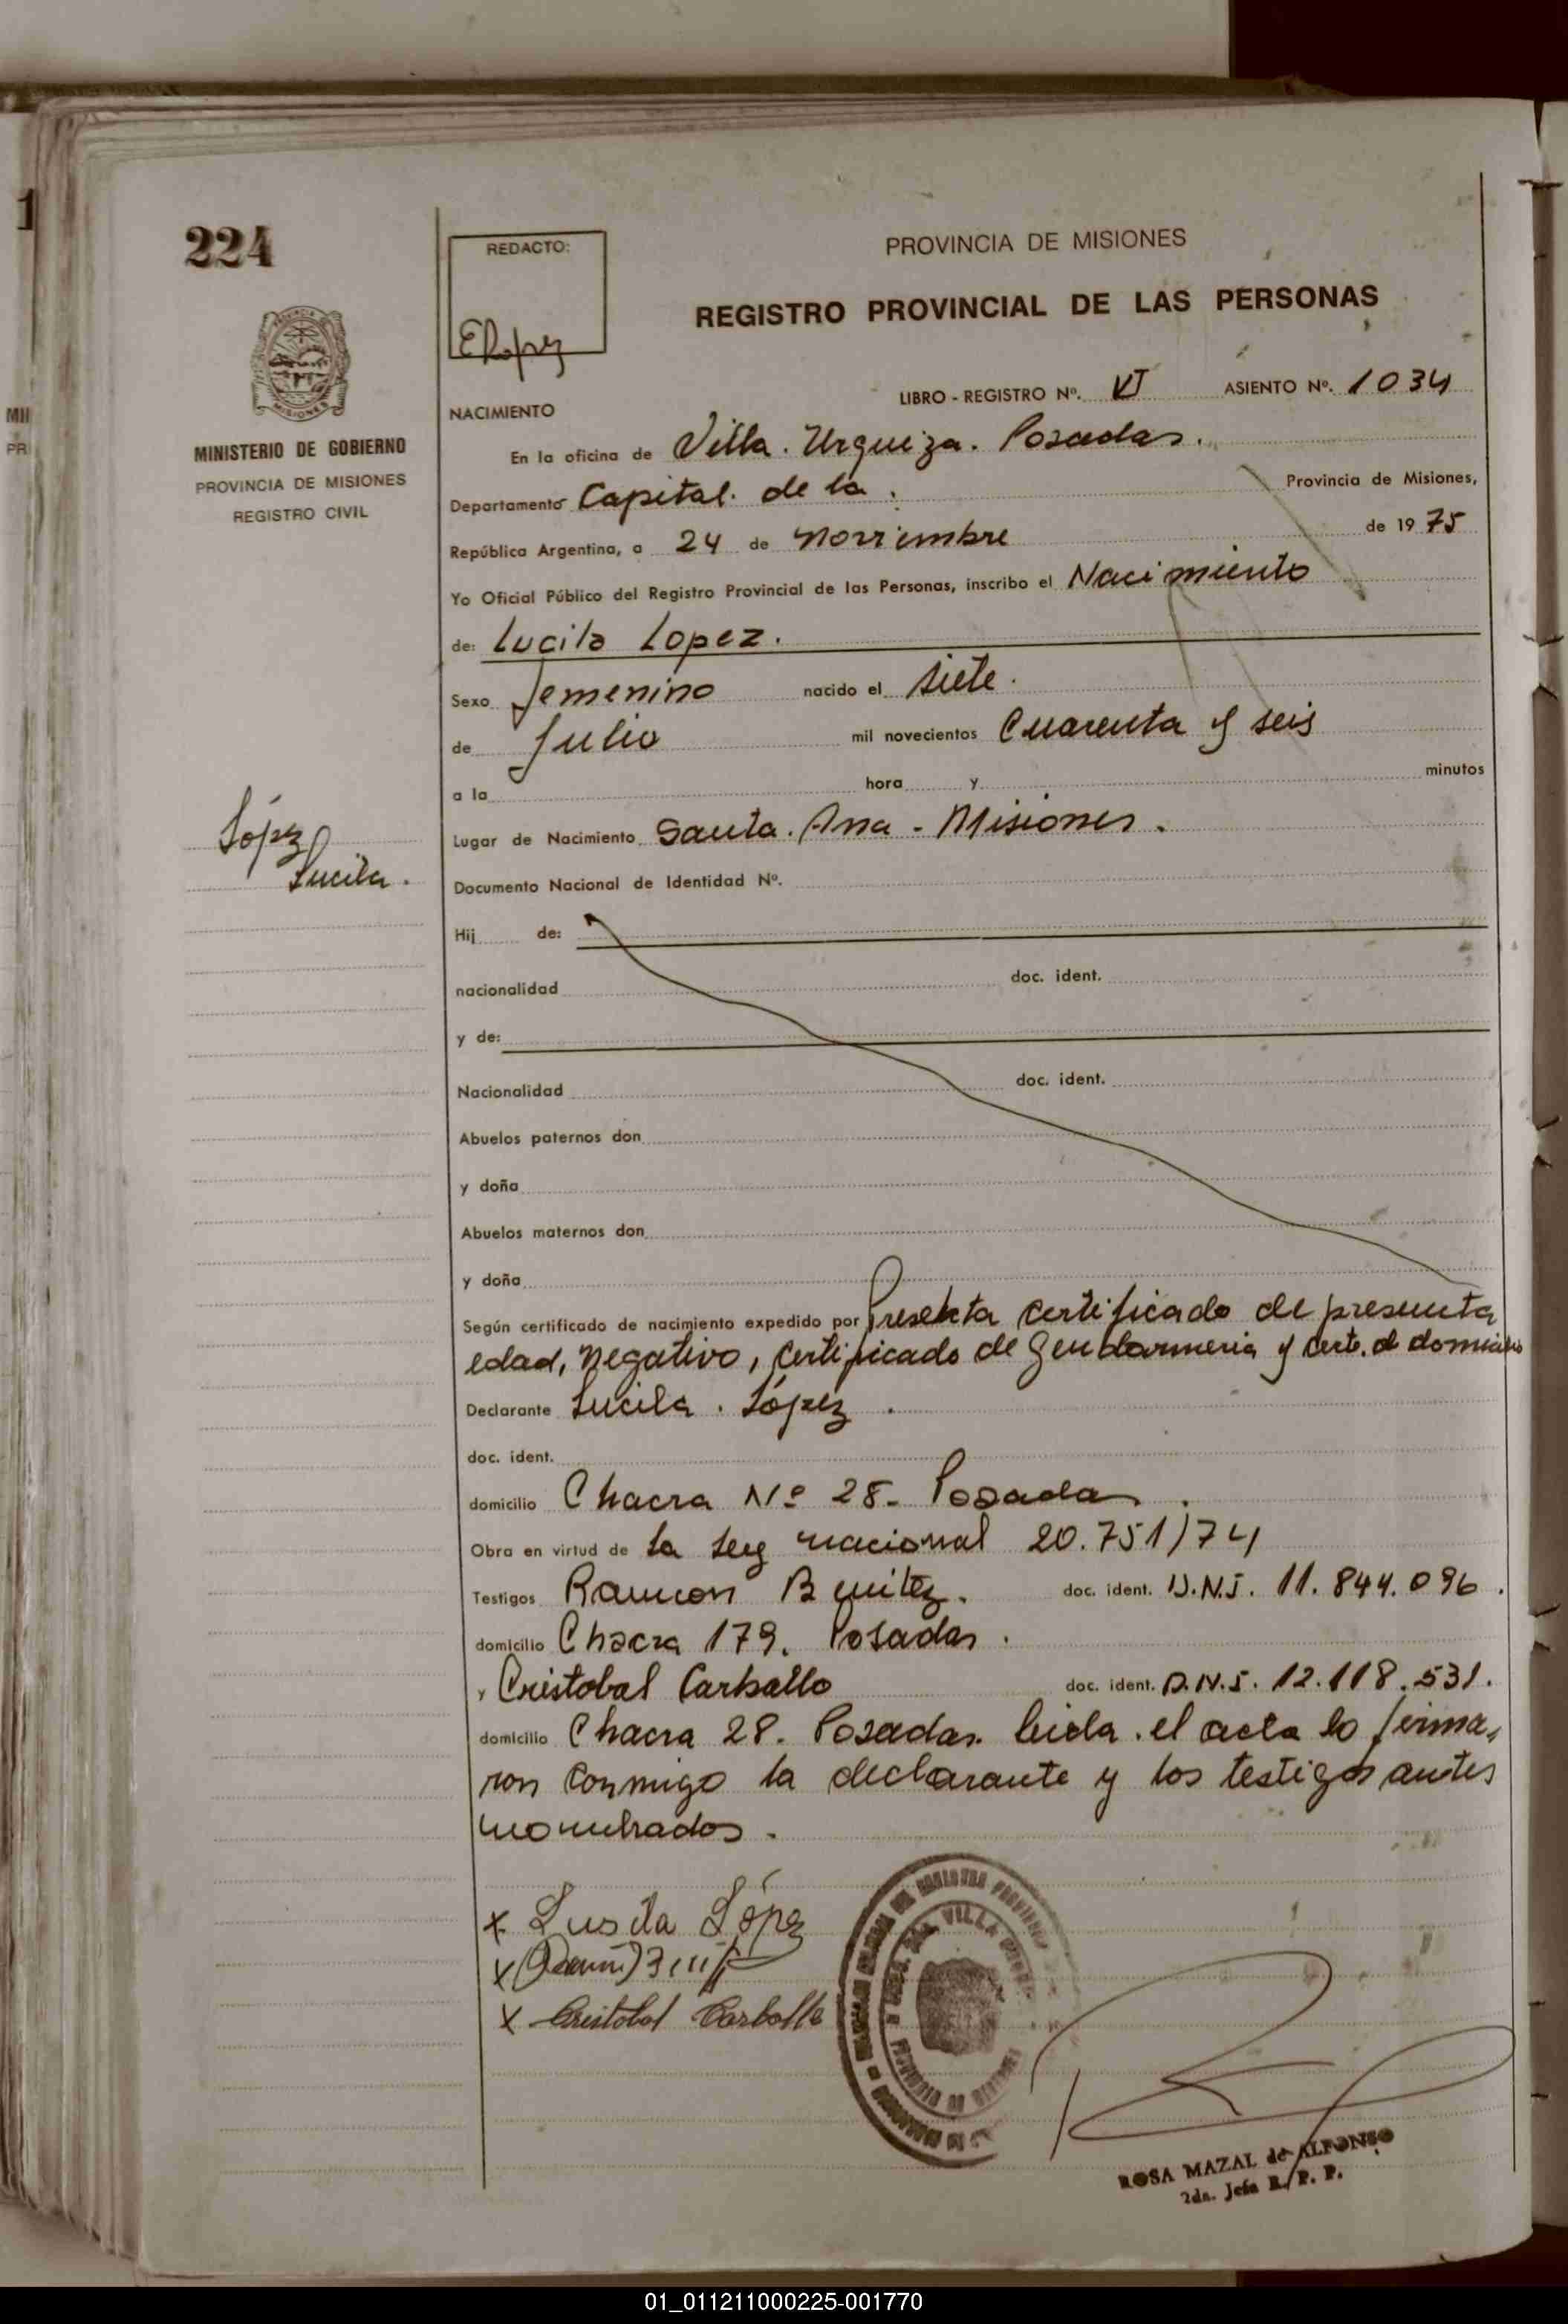 224
REDACTO:
ELopez
PROVINCIA DE MISIONES
REGISTRO PROVINCIAL DE LAS PERSONAS
LIBRO - REGISTRO Nº. VI ASIENTO Nº. 1034
MINISTERIO DE GOBIERNO
PROVINCIA DE MISIONES
REGISTRO CIVIL
NACIMIENTO
En la oficina de Villa. Urquiza. Posadas.
Departamento Capital. de la. Provincia de Misiones,
República Argentina, a 24 de Noviembre de 1975
Yo Oficial Público del Registro Provincial de las Personas, inscribo el Nacimiento
de: Lucila Lopez.
Sexo femenino nacido el siete.
de Julio mil novecientos Cuarenta y seis
a la hora y minutos
López
Lucila.
Lugar de Nacimiento Santa. Ana - Misiones.
Documento Nacional de Identidad Nº.
Hij de:
nacionalidad doc. ident.
y de:
Nacionalidad doc. ident.
Abuelos paternos don
y doña
Abuelos maternos don
y doña
Según certificado de nacimiento expedido por Presenta certificado de presunta
edad, negativo, certificado de Gendarmeria y certe. d domicilio
Declarante Lucila. López.
doc. ident.
domicilio Chacra Nº 28. Posadas.
Obra en virtud de La Ley nacional 20.751/74
Testigos Ramon Benitez. doc. ident. D.N.I. 11.844.096.
domicilio Chacra 179. Posadas.
y Cristobal Carballo doc. ident. D.N.I. 12.118.531.
domicilio Chacra 28. Posadas. leida. el acta lo firma,
ron conmigo la declarante y los testigos antes
nombrados.
x Lusila López
x
x Cristobal Carballo
VILLA
ROSA MAZAL de ALFONSO
2da. Jefa R. P. P.
01_011211000225-001770